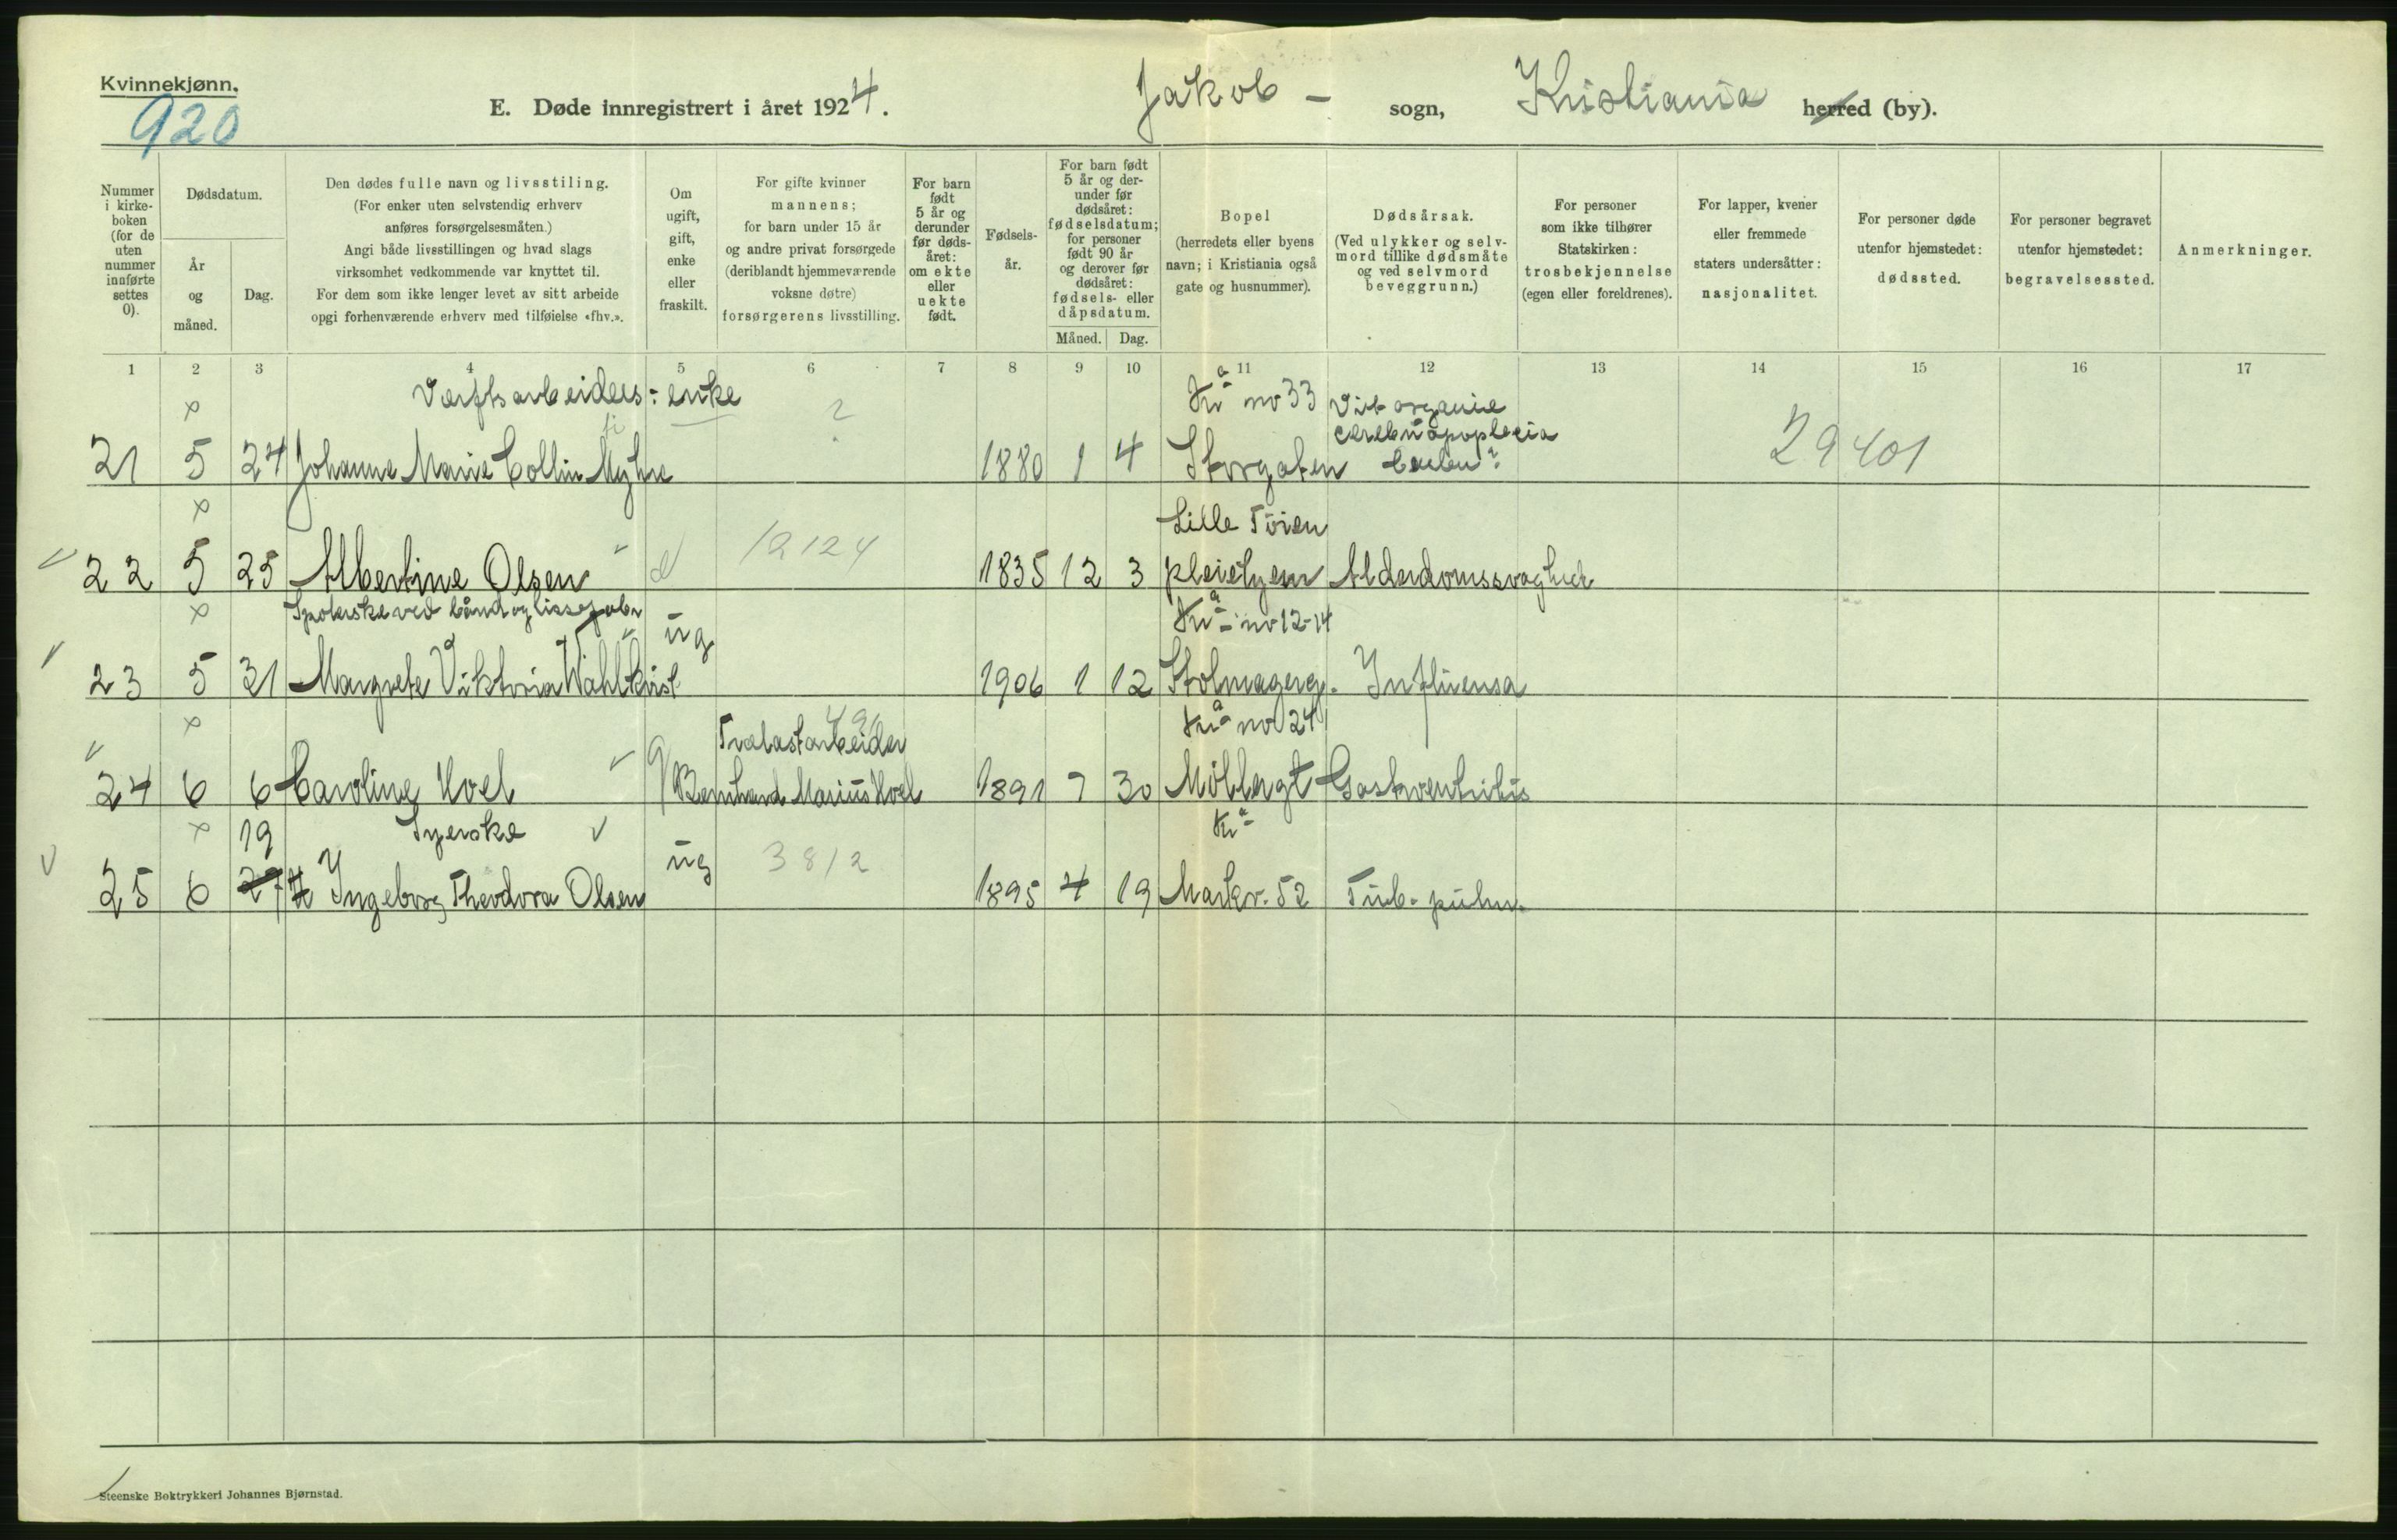 Kvinnekjønn.
920
E. Døde innregistrert i året 1924.
Jakob - sogn, Kristiania herred (by).
Nummer i kirke-boken (for de uten nummer innførte settes 0).
Dødsdatum.
År og måned.
Dag.
Den dødes fulle navn og livsstiling.
(For enker uten selvstendig erhverv
anføres forsørgelsesmåten.)
Angi både livsstillingen og hvad slags
virksomhet vedkommende var knyttet til.
For dem som ikke lenger levet av sitt arbeide
opgi forhenværende erhverv med tilføielse «fhv.».
Om ugift, gift, enke eller fraskilt.
For gifte kvinner
mannens;
for barn under 15 år
og andre privat forsørgede
(deriblandt hjemmeværende
voksne døtre)
forsørgerens livsstilling.
For barn født 5 år og derunder før døds-året: om ekte eller uekte født.
Fødsels-år.
For barn født 5 år og der-under før dødsåret: fødselsdatum; for personer født 90 år og derover før dødsåret: fødsels- eller dåpsdatum.
Måned. Dag.
Bopel
(herredets eller byens
navn; i Kristiania også
gate og husnummer).
Dødsårsak.
(Ved ulykker og selv-
mord tillike dødsmåte
og ved selvmord
beveggrunn.)
For personer
som ikke tilhører
Statskirken:
trosbekjennelse
(egen eller foreldrenes).
For lapper, kvener
eller fremmede
staters undersåtter:
nasjonalitet.
For personer døde
utenfor hjemstedet:
dødssted.
For personer begravet
utenfor hjemstedet:
begravelsessted.
Anmerkninger.
1 2 3 4 5 6 7 8 9 10 11 12 13 14 15 16 17
x Verftsarbeiders: enke 2 Kra no 33 Vit. organic
cerebri apoplexia
21 5 24 Johanne Marie Collin Myhre 1880 1 4 Storgaten 29401
x Lille Tøien
22 5 25 Albertine Olsen e 12124 1835 12 3 pleiehjem Alderdomssvaghed
x Spolerske ved bånd og lissefabr ug Kra no 12-14
23 5 31 Margrete Viktoria Wahlkvist 1906 1 12 Stolmagerg. Influensa
x g Trælastarbeider Kra no 24
24 6 6 Caroline Hoel Bernhard Marius Hoel 1891 7 30 Møllergt Gastroenteritis
x 19 Syerske ug 3812 Kra
25 6 27 Ingeborg Theodora Olsen 1895 4 19 Markv. 52 Tub. pulm.
Steenske Boktrykkeri Johannes Bjørnstad.